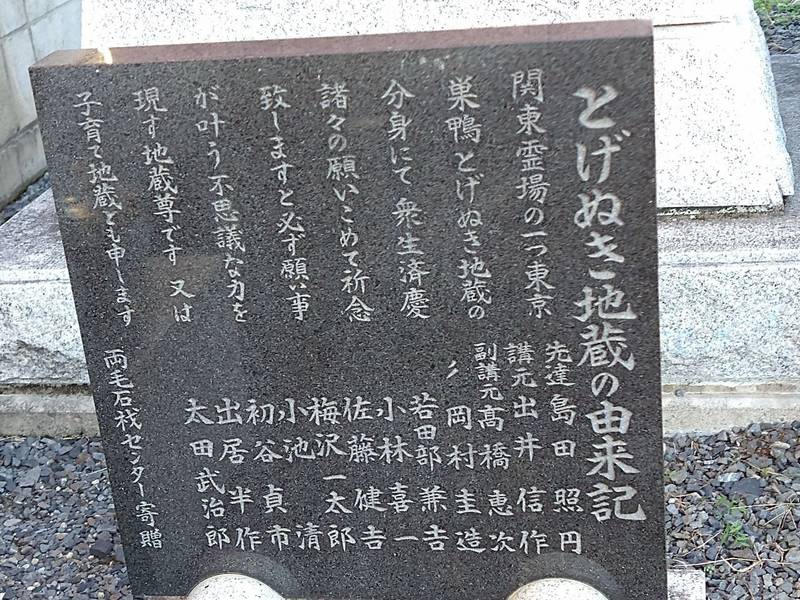 とげぬき地蔵の由来記
関東霊場の一つ東京
巣鴨とげぬき地蔵の
分身にて衆生済慶
諸々の願いこめて祈念
致しますと必ず願い事
が叶う不思議な力を
現す地蔵尊です 又は
子育て地蔵とも申します
先達 島田照円
講元 出井信作
副講元 高橋恵次
〃 岡村圭造
若田部兼吉
小林喜一
佐藤健吉
梅沢一太郎
小池清
初谷貞市
出居半作
太田武治郎
両毛石材センター寄贈